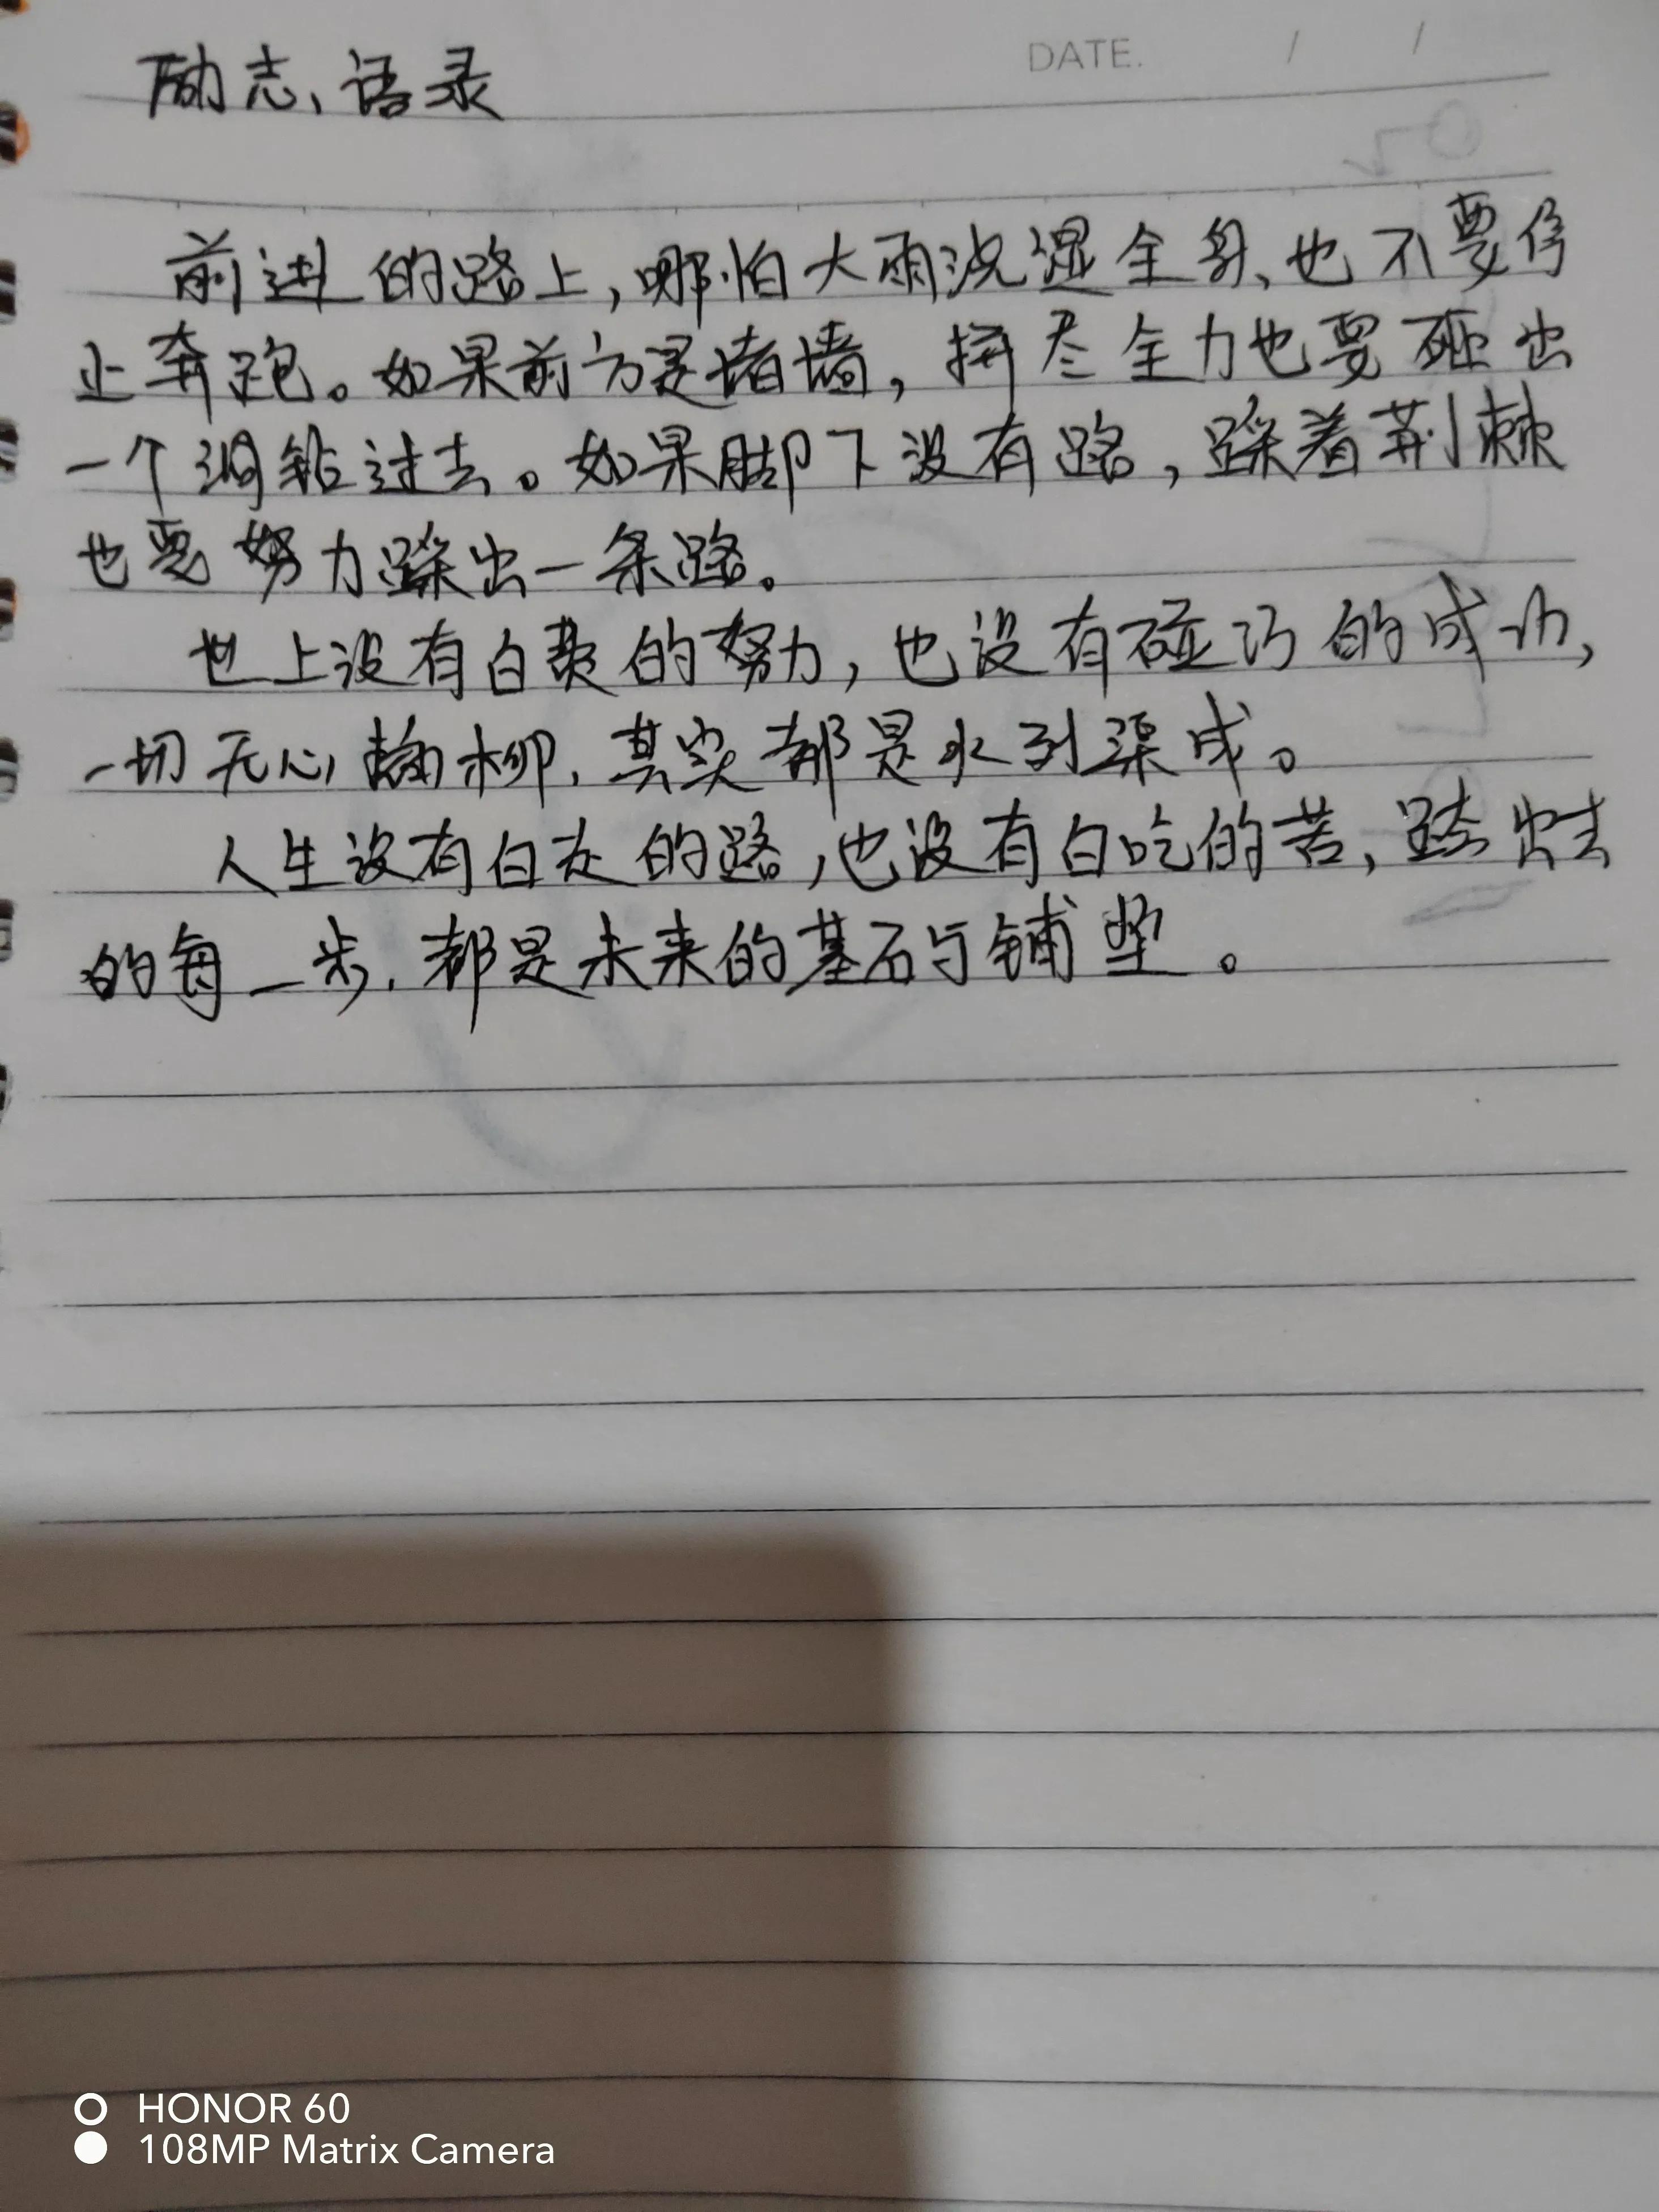 励志语录
DATE. / /
前进的路上,哪怕大雨浇湿全身、也不要停
止奔跑。如果前方是堵墙,拼尽全力也要砸出
一个洞钻过去。如果脚下没有路,踩着荆棘
也要努力踩出一条路。
世上没有白费的努力,也没有碰巧的成功,
一切无心插柳,其实都是水到渠成。
人生没有白走的路,也没有白吃的苦,跨出去
的每一步,都是未来的基石与铺垫。
HONOR 60
108MP Matrix Camera